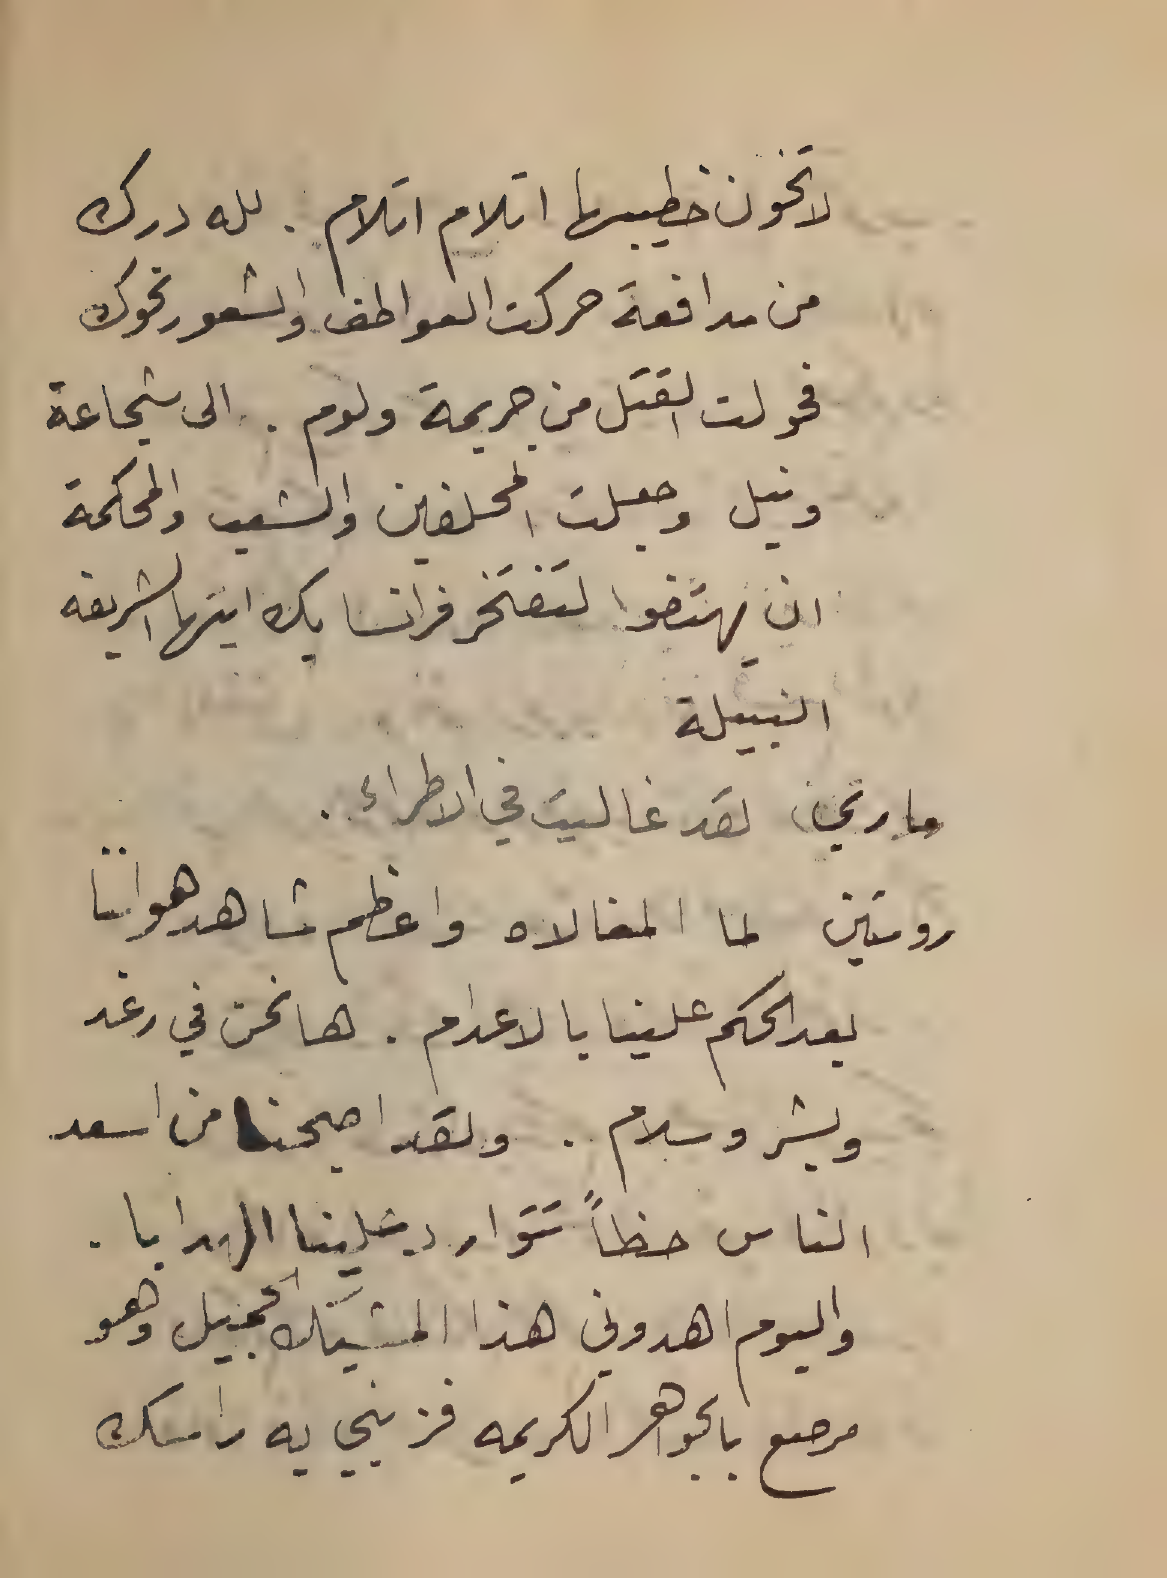 لا تخون خطيبها اتلام اتلام . لله درك
من مدافعة حركت العواطف والشعور نحوك
فحولت القتل من جريمة ولوم . الى شجاعة
ونبل وجعلت المحلفين والشعب والمحكمة
ان يهتفوا لتفتخر فرانسا بك ايتها الشريفه
النبيلة
مارتي لقد غاليت في الاطراء .
روستين لما المغالاه واعظم شاهد هو اننا
بعد الحكم علينا بالاعدام . ها نحن في رغد
وبشر وسلام . ولقد اصبحنا من اسعد
الناس حظاً تتوارد علينا الهدايا .
واليوم اهدوني هذا المشبك الجميل وهو
مرصع بالجواهر الكريمه فزيني به راسك